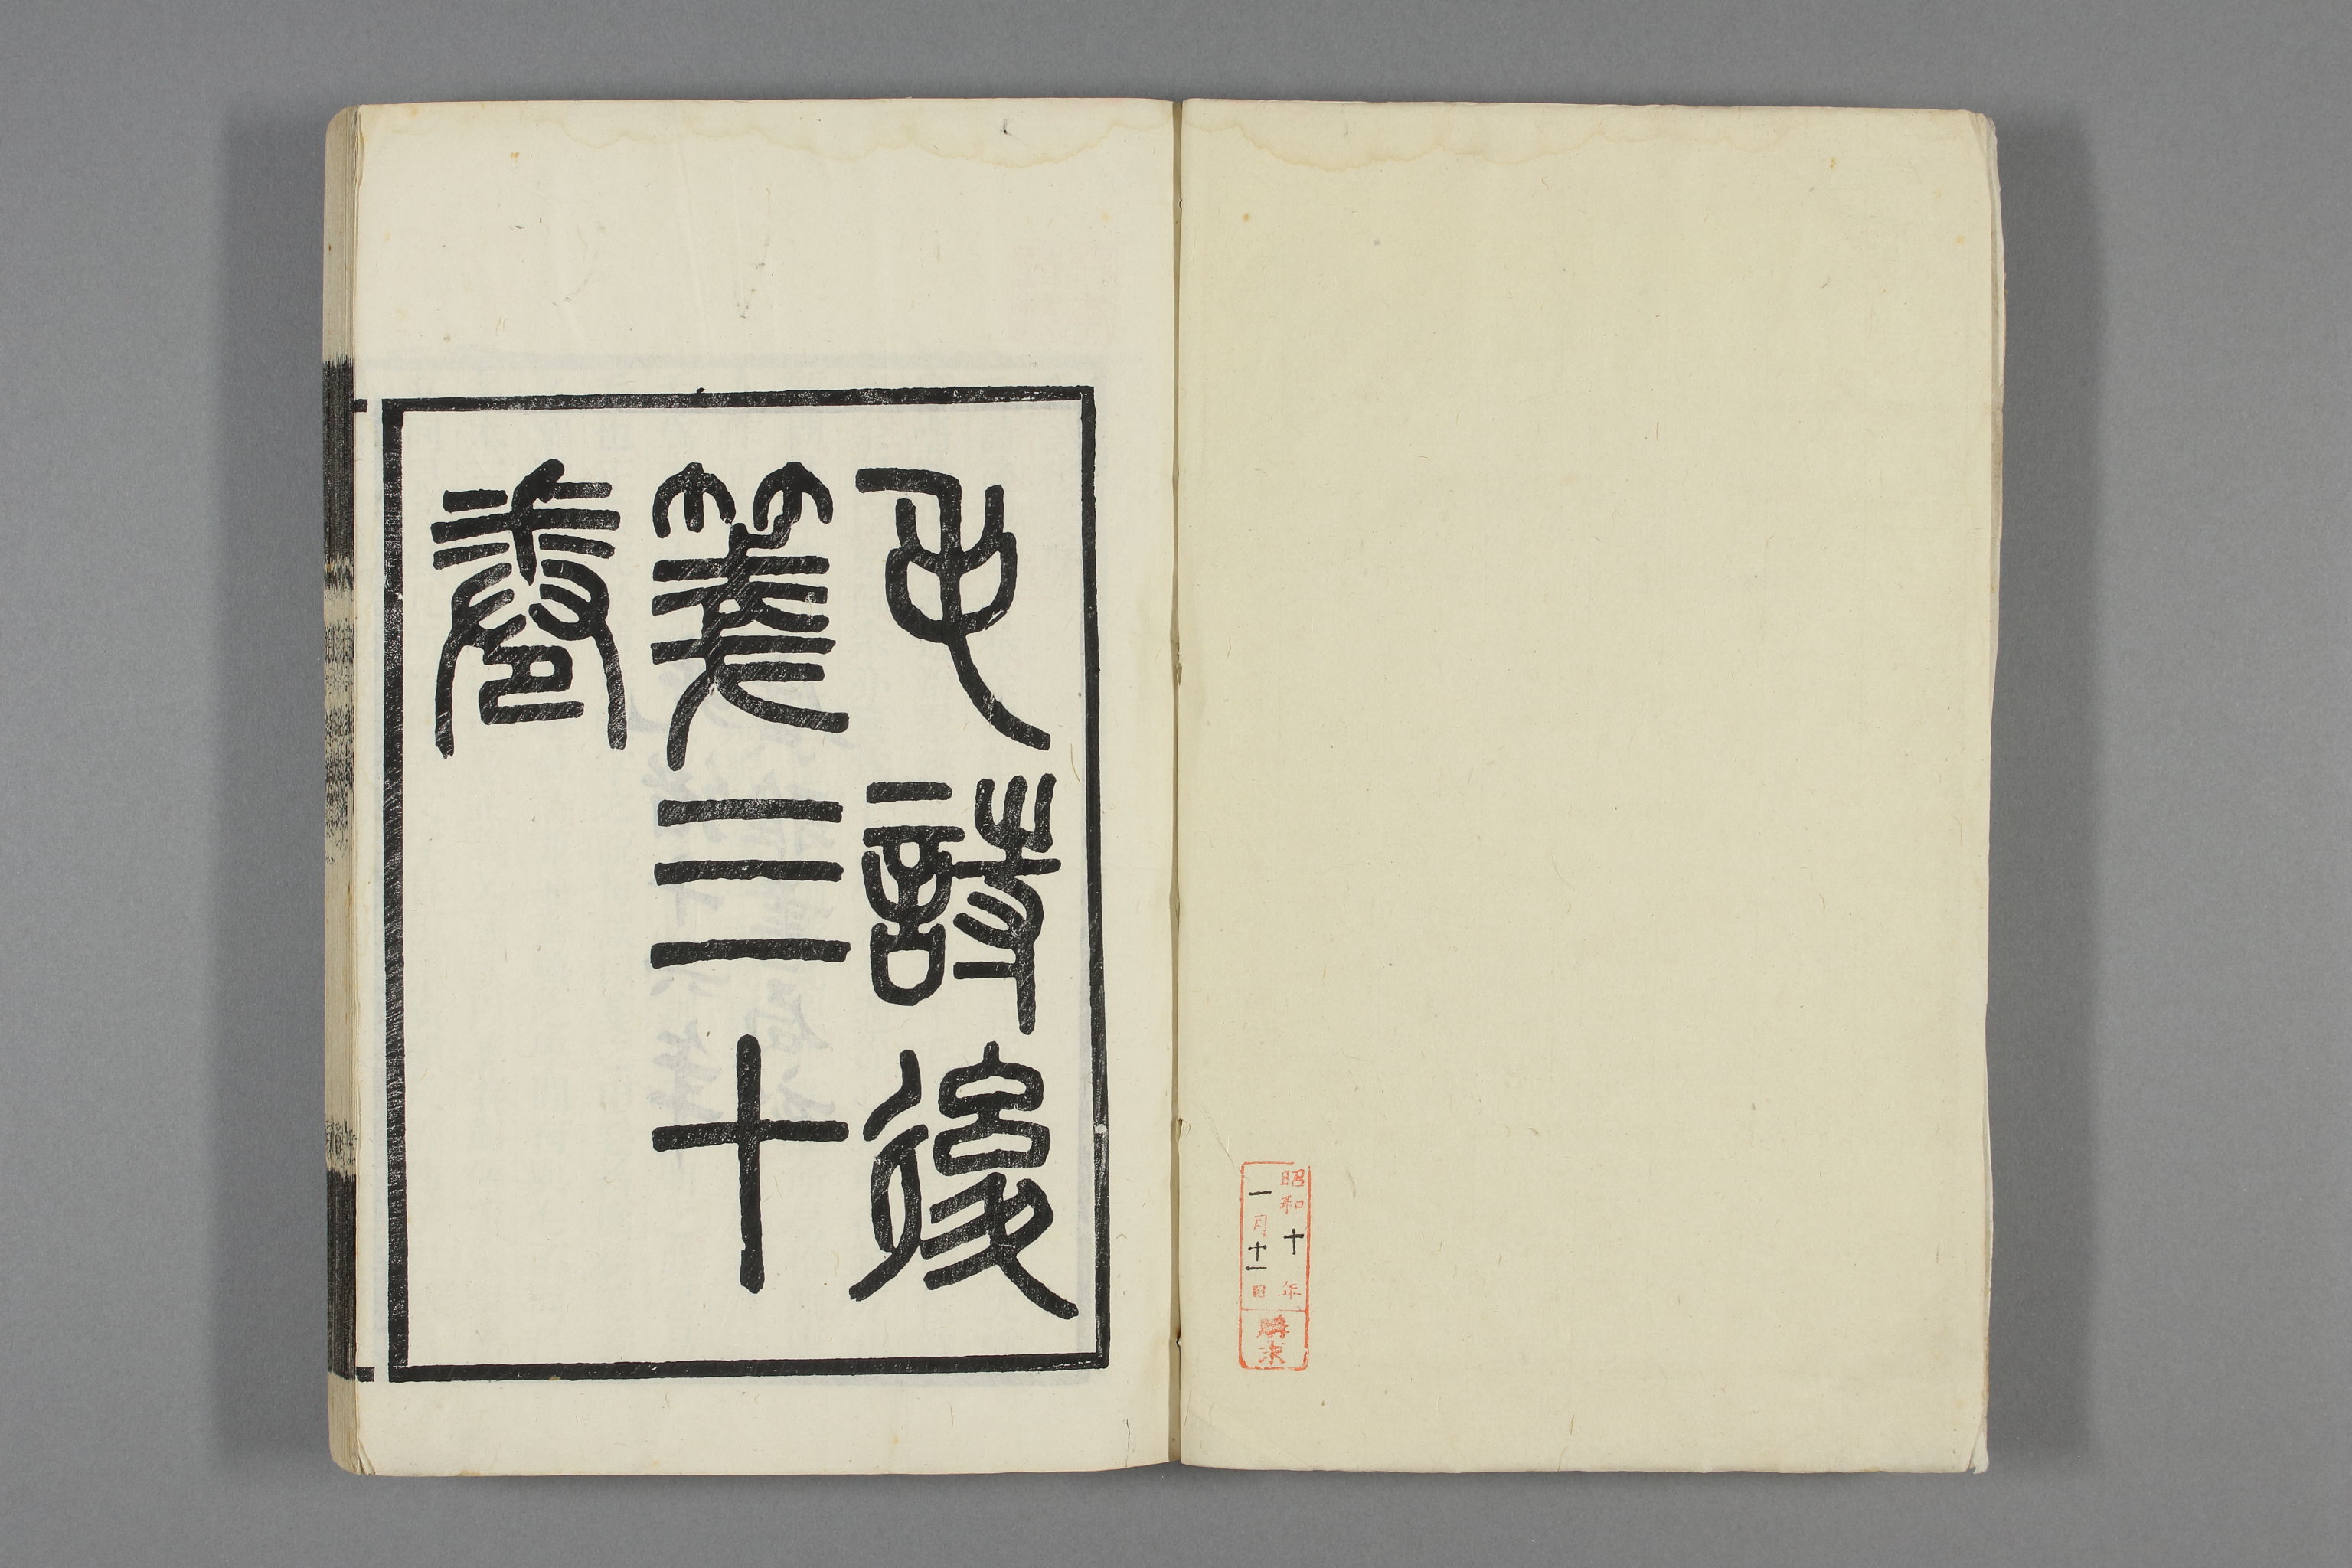 昭和十年
一月十一日
購求
毛詩後
箋三十
卷